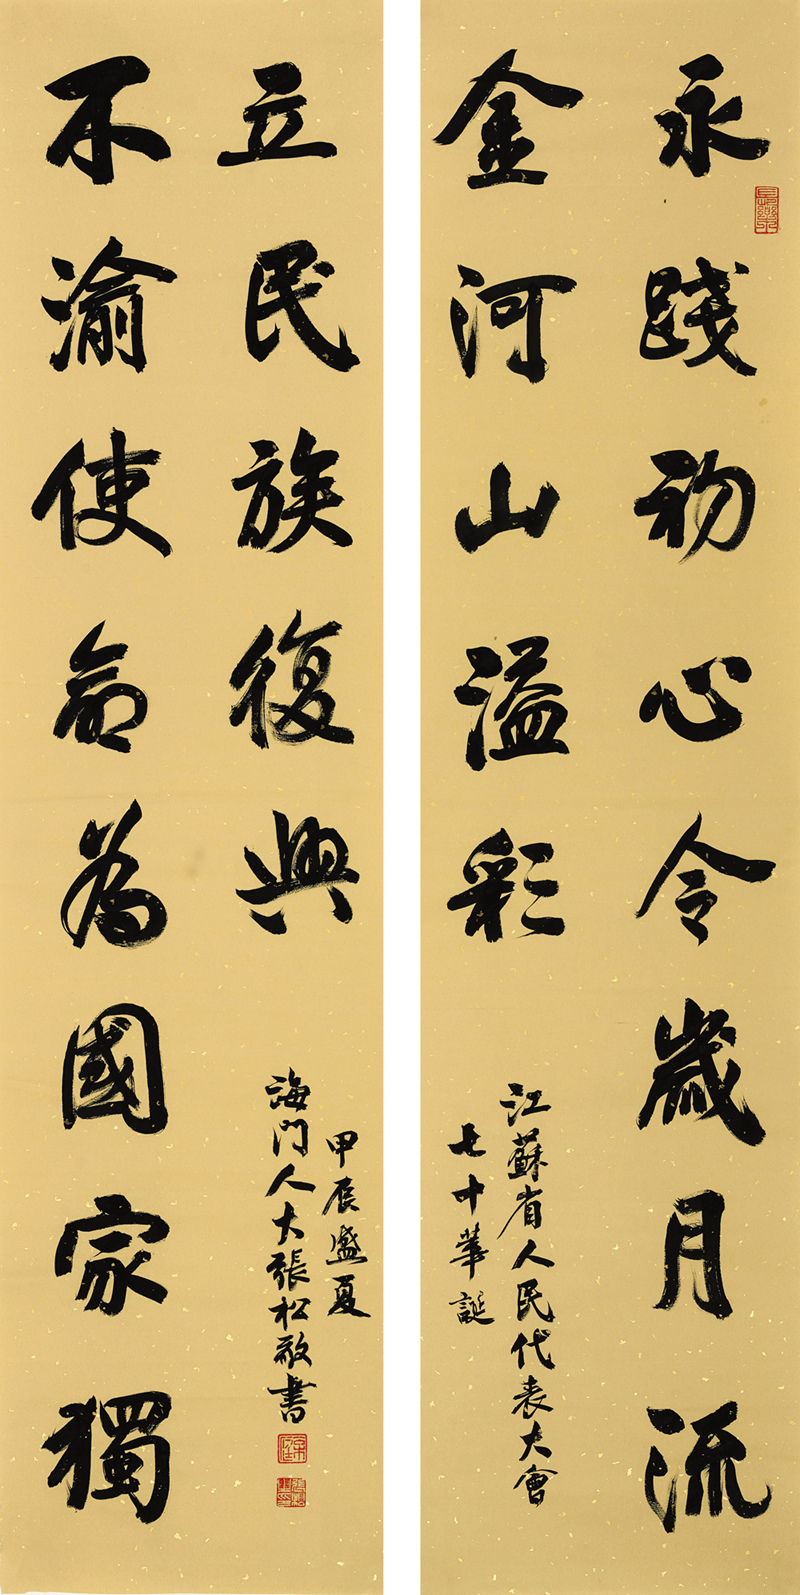 永踐初心令歲月流
金河山溢彩
江蘇省人民代表大會
七十華誕
不渝使命為國家獨
立民族復興
甲辰盛夏
海門人大張松敬書